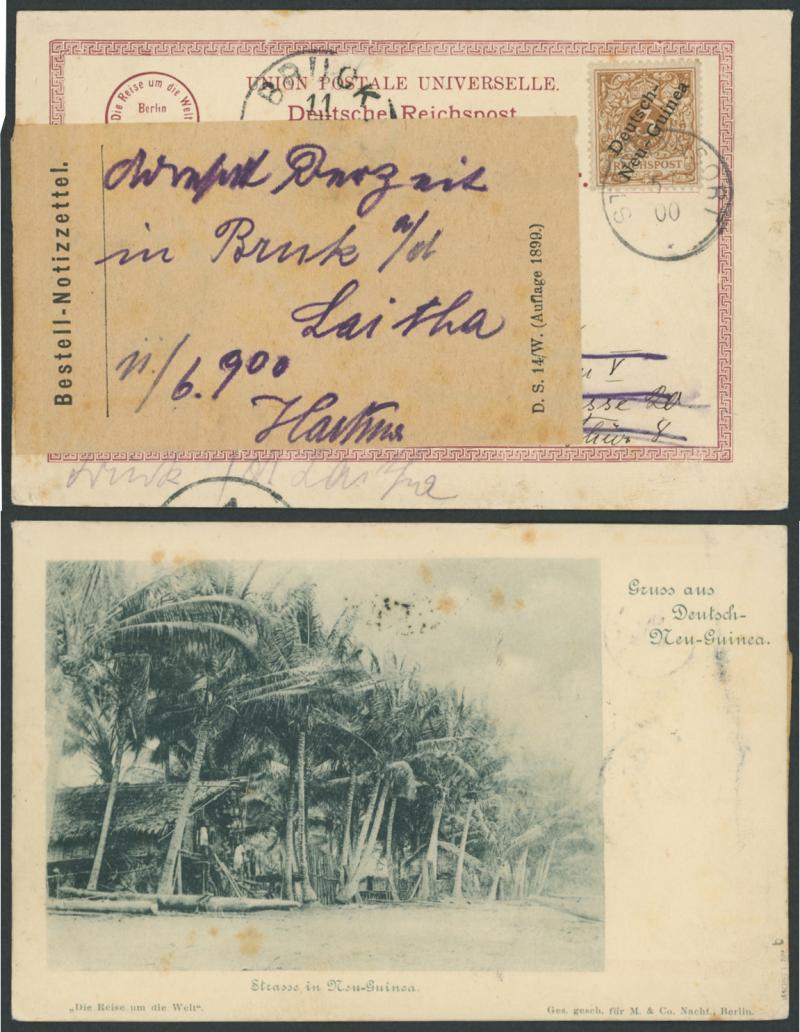 Die Reise um die Welt
Berlin
UNION POSTALE UNIVERSELLE.
Deutsche Reichspost
BRUCK
11
Deutsch-
Neu-Guinea
REICHSPOST
ORT
00
Bestell-Notizzettel.
Derzeit
in Bruk a/d
Laitha
11/6. 900
D. S. 14/W. (Auflage 1899.)
V
sse 20
8
Bruk a/d Laitha
1
Gruss aus
Deutsch-
Neu-Guinea.
Strasse in Neu-Guinea.
„Die Reise um die Welt“.
Ges. gesch. für M. & Co. Nachf., Berlin.